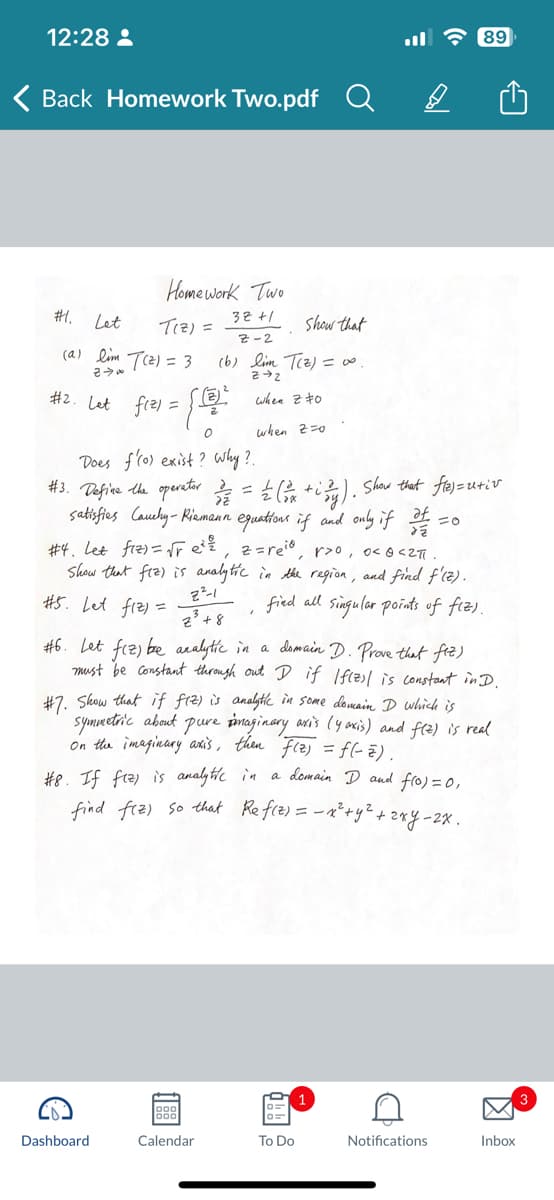 12:28
89
Back Homework Two.pdf
Homework Two
#1. Let T(z) = (3z+1)/(z-2). Show that
(a) lim_{z→∞} T(z) = 3 (b) lim_{z→2} T(z) = ∞.
#2. Let f(z) = { (z̄)²/z when z≠0
0 when z=0 .
Does f'(0) exist? Why?.
#3. Define the operator ∂/∂z̄ = 1/2(∂/∂x + i ∂/∂y). Show that f(z)=u+iv
satisfies Cauchy-Riemann equations if and only if ∂f/∂z̄ = 0
#4. Let f(z) = √r e^{iθ/2}, z=re^{iθ}, r>0, 0<θ<2π.
Show that f(z) is analytic in the region, and find f'(z).
#5. Let f(z) = (z²-1)/(z³+8), find all singular points of f(z).
#6. Let f(z) be analytic in a domain D. Prove that f(z)
must be constant through out D if |f(z)| is constant in D.
#7. Show that if f(z) is analytic in some domain D which is
symmetric about pure imaginary axis (y axis) and f(z) is real
on the imaginary axis, then \overline{f(z)} = f(-z̄).
#8. If f(z) is analytic in a domain D and f(0)=0,
find f(z) so that Re f(z) = -x²+y²+2xy-2x.
1
3
Dashboard Calendar To Do Notifications Inbox